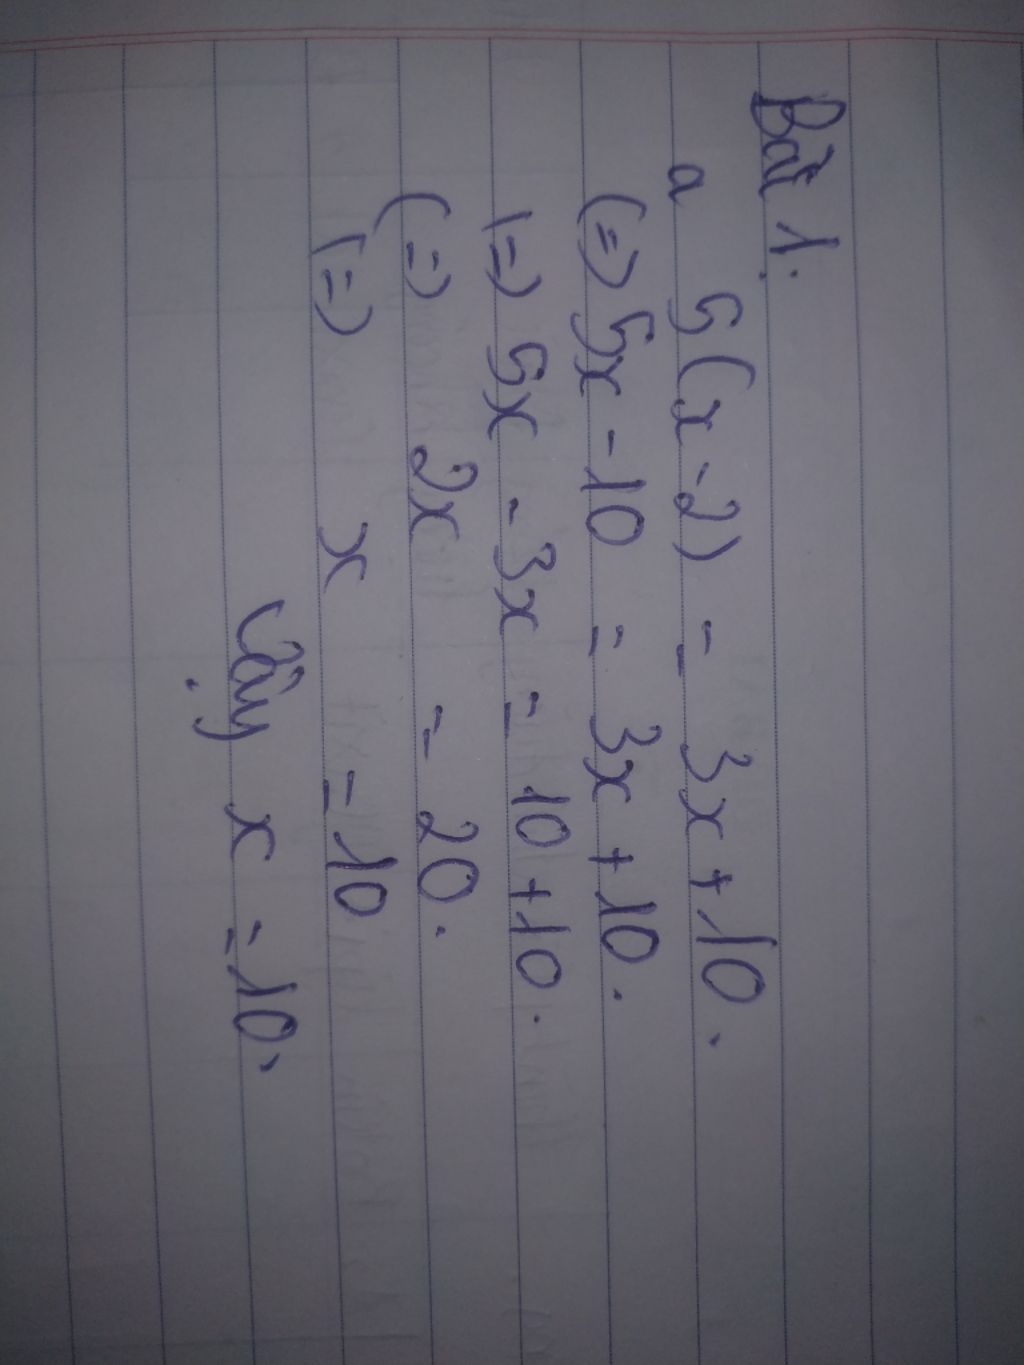 Bài 1.
a 5(x-2) = 3x+10.
(=) 5x-10 = 3x+10.
(=) 5x-3x = 10+10.
(=) 2x = 20.
(=) x = 10
Vậy x = 10.